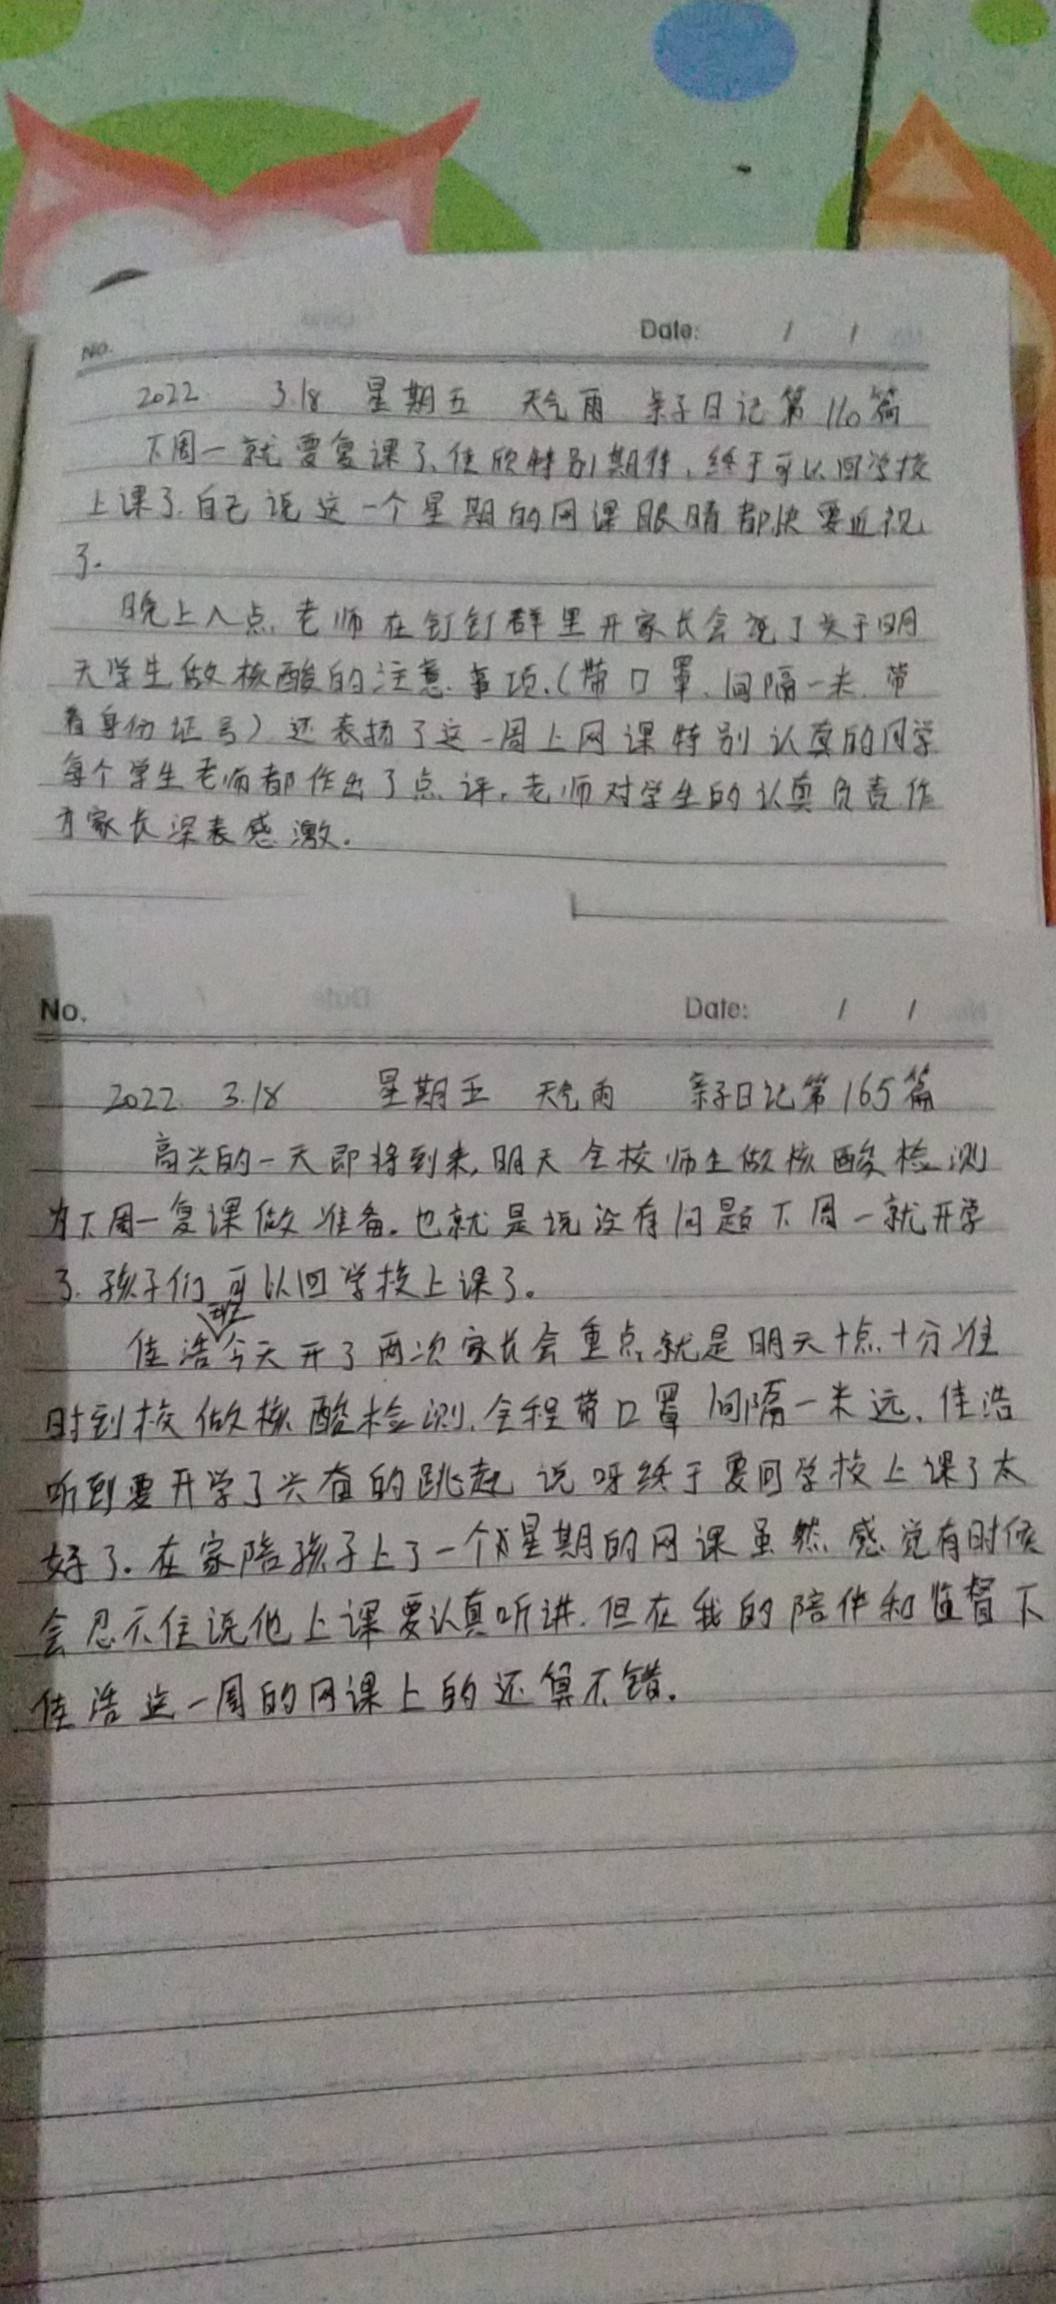 No. Date: / /
2022 3.18 星期五 天气雨 亲子日记第110篇
下周一就要复课了、佳欣特别期待,终于可以回学校
上课了.自己说这一个星期的网课眼睛都快要近视
了.
晚上八点,老师在钉钉群里开家长会说了关于明
天学生做核酸的注意事项.(带口罩、间隔一米.带
着身份证号)还表扬了这一周上网课特别认真的同学
每个学生老师都作出了点评,老师对学生的认真负责作
为家长深表感激.
No. Date: / /
2022 3.18 星期五 天气雨 亲子日记第165篇
高兴的一天即将到来,明天全校师生做核酸检测
为下周一复课做准备.也就是说没有问题下周一就开学
了.孩子们可以回学校上课了.
佳浩班今天开了两次家长会重点就是明天十点十分准
时到校做核酸检测,全程带口罩间隔一米远.佳浩
听到要开学了兴奋的跳起说呀终于要回学校上课了太
好了.在家陪孩子上了一个星期的网课虽然感觉有时候
会忍不住说他上课要认真听讲.但在我的陪伴和监督下
佳浩这一周的网课上的还算不错.